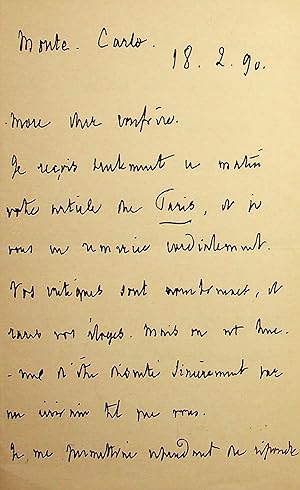 Monte-Carlo.
18.2.90.
Mon cher confrère.
Je reçois seulement ce matin
votre article du Paris, et je
vous en remercie cordialement.
Vos critiques sont nombreuses, et
rares vos éloges. Mais on est
d'être discuté sincèrement par
un écrivain tel que vous.
Je me permettrai cependant de répondre